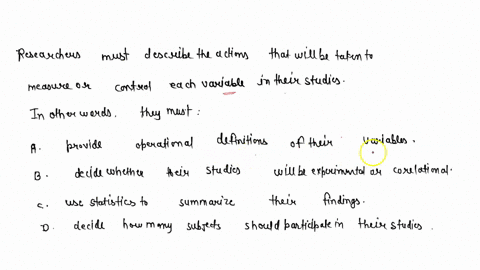 Researchers must describe the actions that will be taken to
measure or control each variable in their studies.
In other words, they must :
A. provide operational definitions of their variables.
B. decide whether their studies will be experimental or corelational.
C. use statistics to summarize their findings.
D. decide how many subjects should participate in their studies.